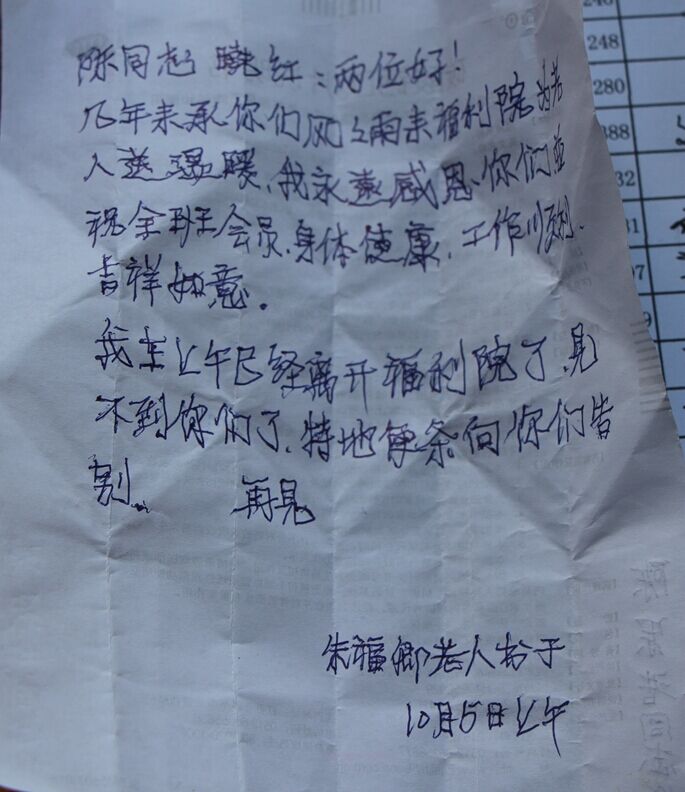 陈同志 晓红：两位好！
几年来承你们风风雨雨来福利院为老
人送温暖，我永远感恩你们并
祝全班会员身体健康，工作顺利、
吉祥如意。
我在上午已经离开福利院了，见
不到你们了，特地便条向你们告
别。 再见
朱福卿老人于
10月5日上午
248
280
388
32
31